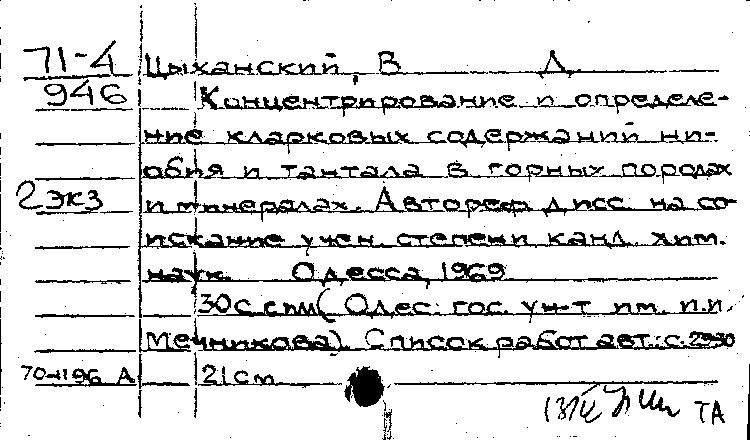 71-4 Цыханский, В Д.
946 Концентрирование и определе-
ние кларковых содержаний ни-
обия и тантала в горных породах
2 экз и минералах. Автореф дисс. на со-
искание учен. степени канд. хим.
наук. Одесса, 1969
30с с ил ( Одес. гос. ун-т им. И.И.
Мечникова). Список работ авт.: с. 29-30
70-1196 А 21 см
ТА